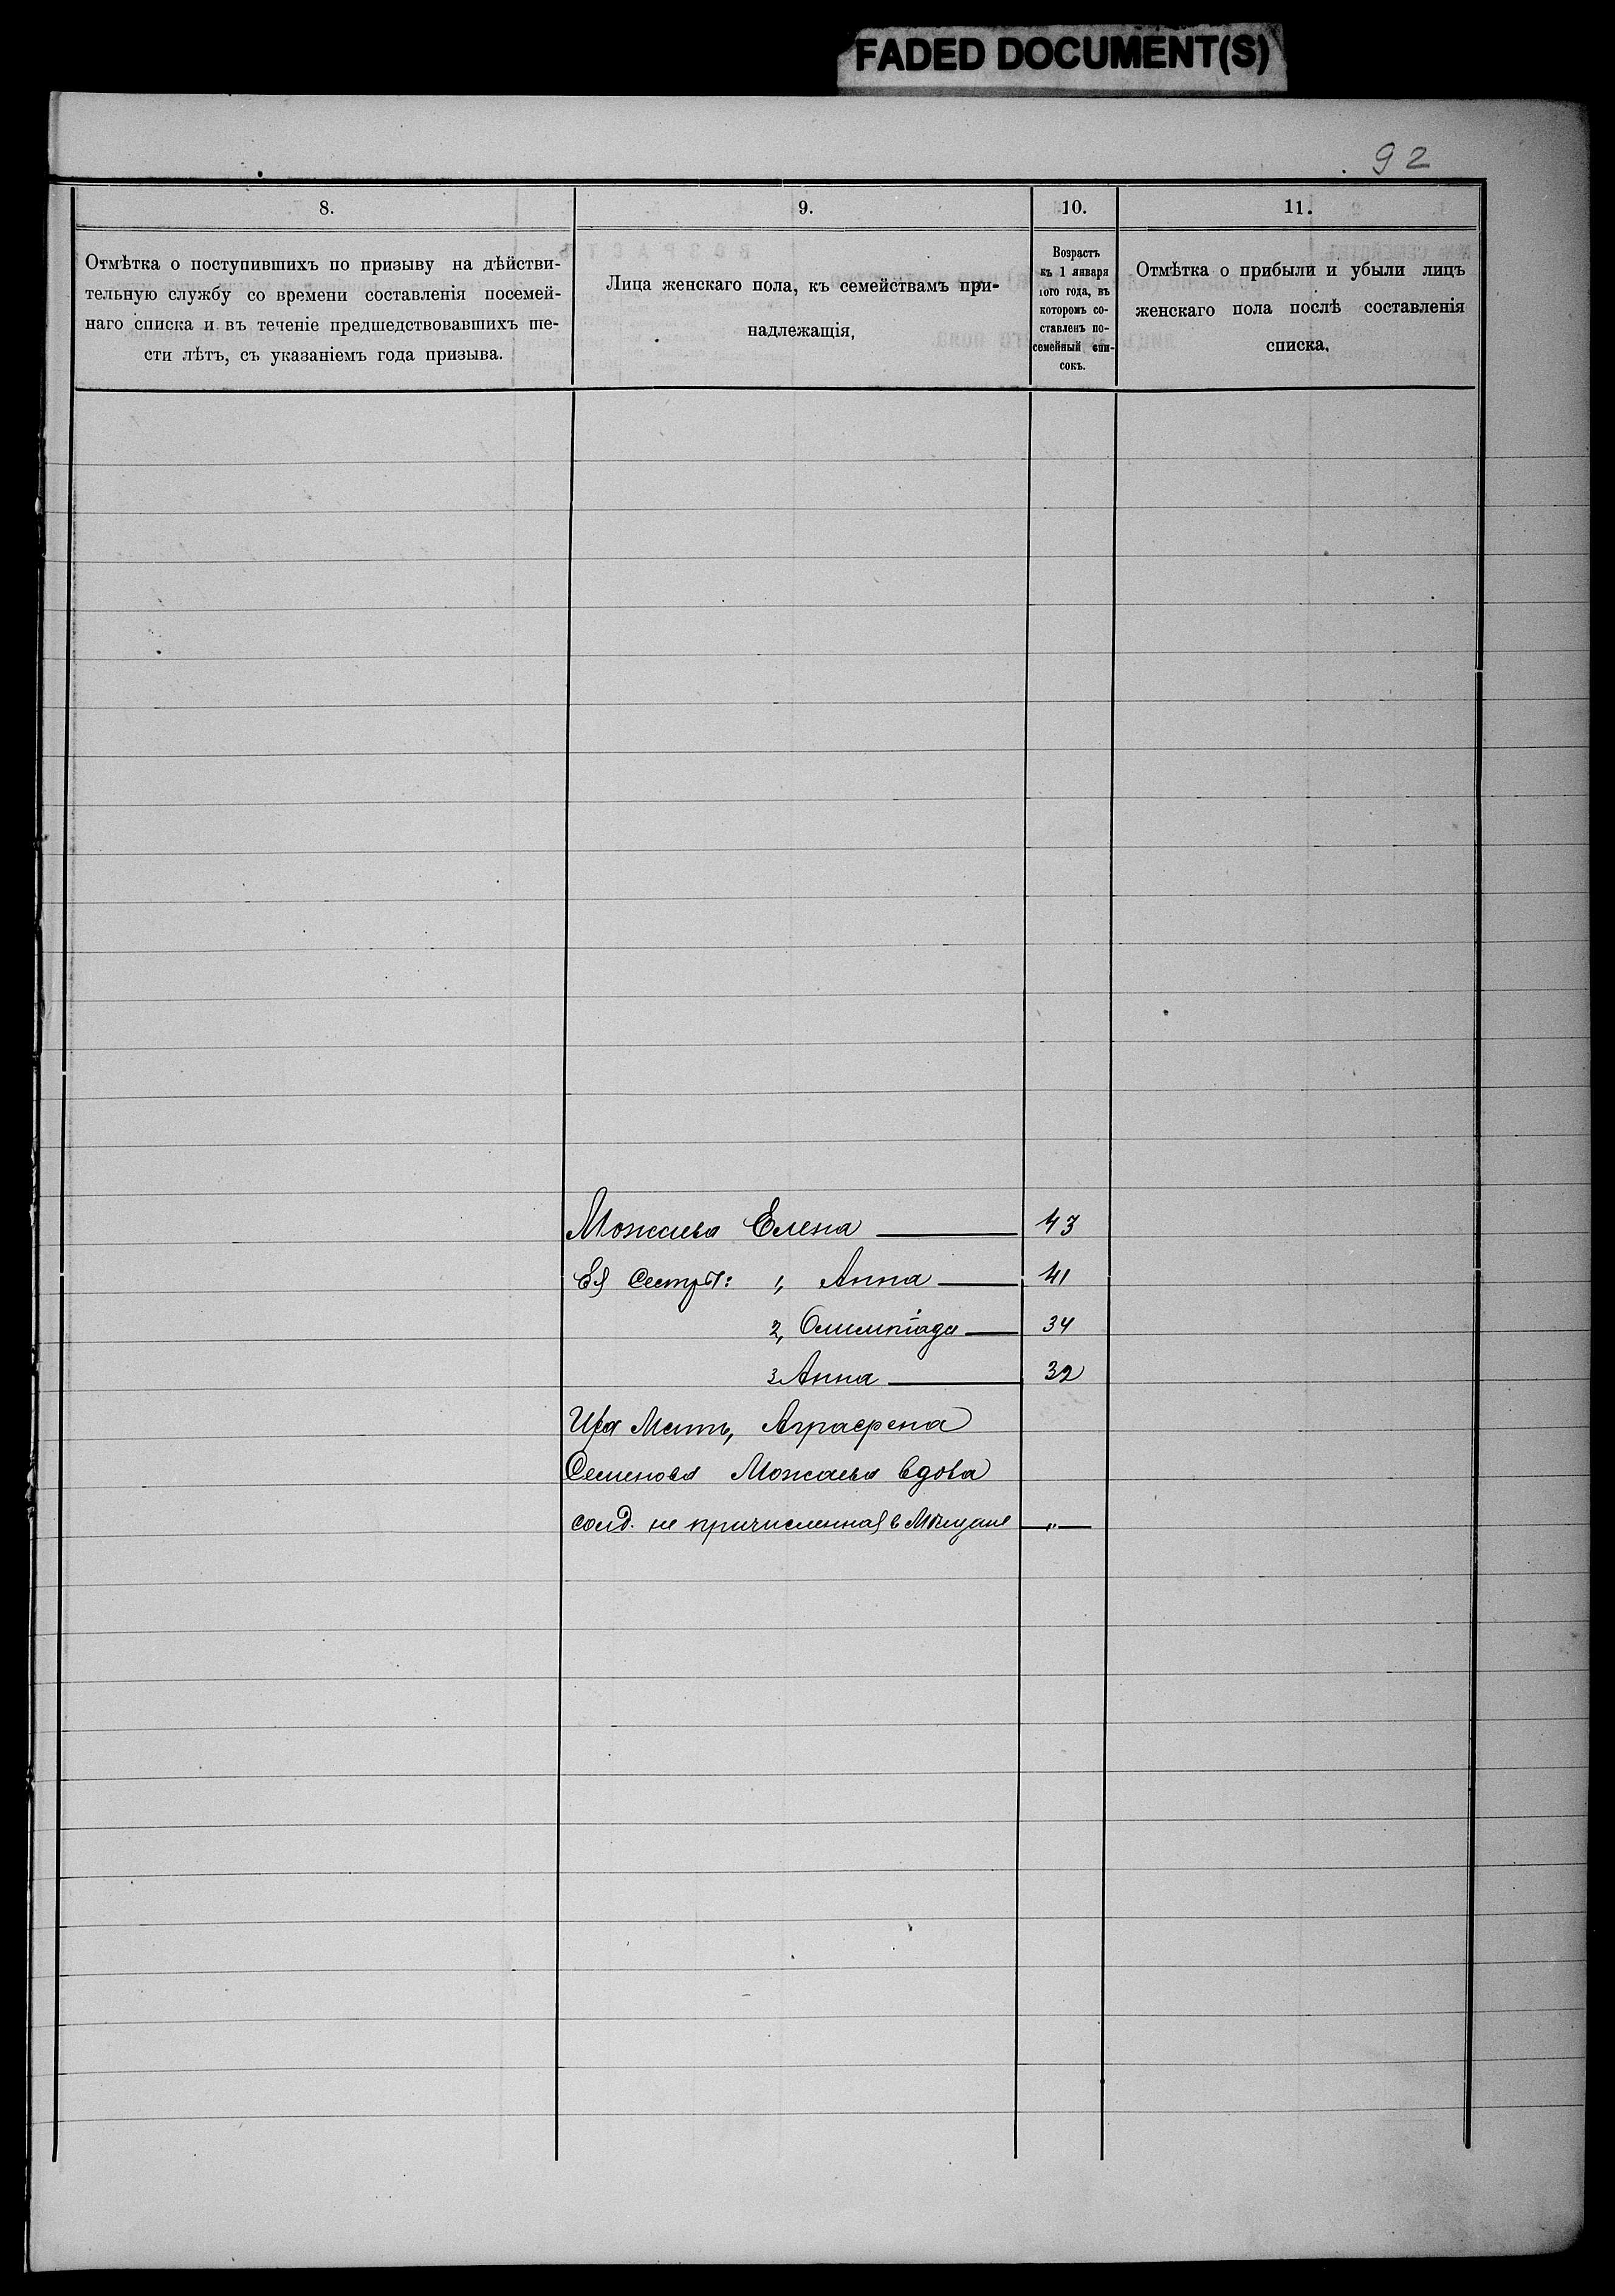 FADED DOCUMENT(S)
92
8.
Отмѣтка о поступившихъ по призыву на дѣйстви-
тельную службу со времени составленія посемей-
наго списка и въ теченіе предшедствовавшихъ ше-
сти лѣтъ, съ указаніемъ года призыва.
9.
Лица женскаго пола, къ семействамъ при-
надлежащія,
10.
Возрастъ
къ 1 января
того года, въ
которомъ со-
ставленъ по-
семейный спи-
сокъ.
11.
Отмѣтка о прибыли и убыли лицъ
женскаго пола послѣ составленія
списка,
Можаева Елена — 43
Ея Сестры: 1, Анна — 41
2, Олимпіада — 34
3 Анна — 32
Ихъ Мать, Аграфена
Семенова Можаева вдова
солд. не причисленная в Мѣщане — „ —